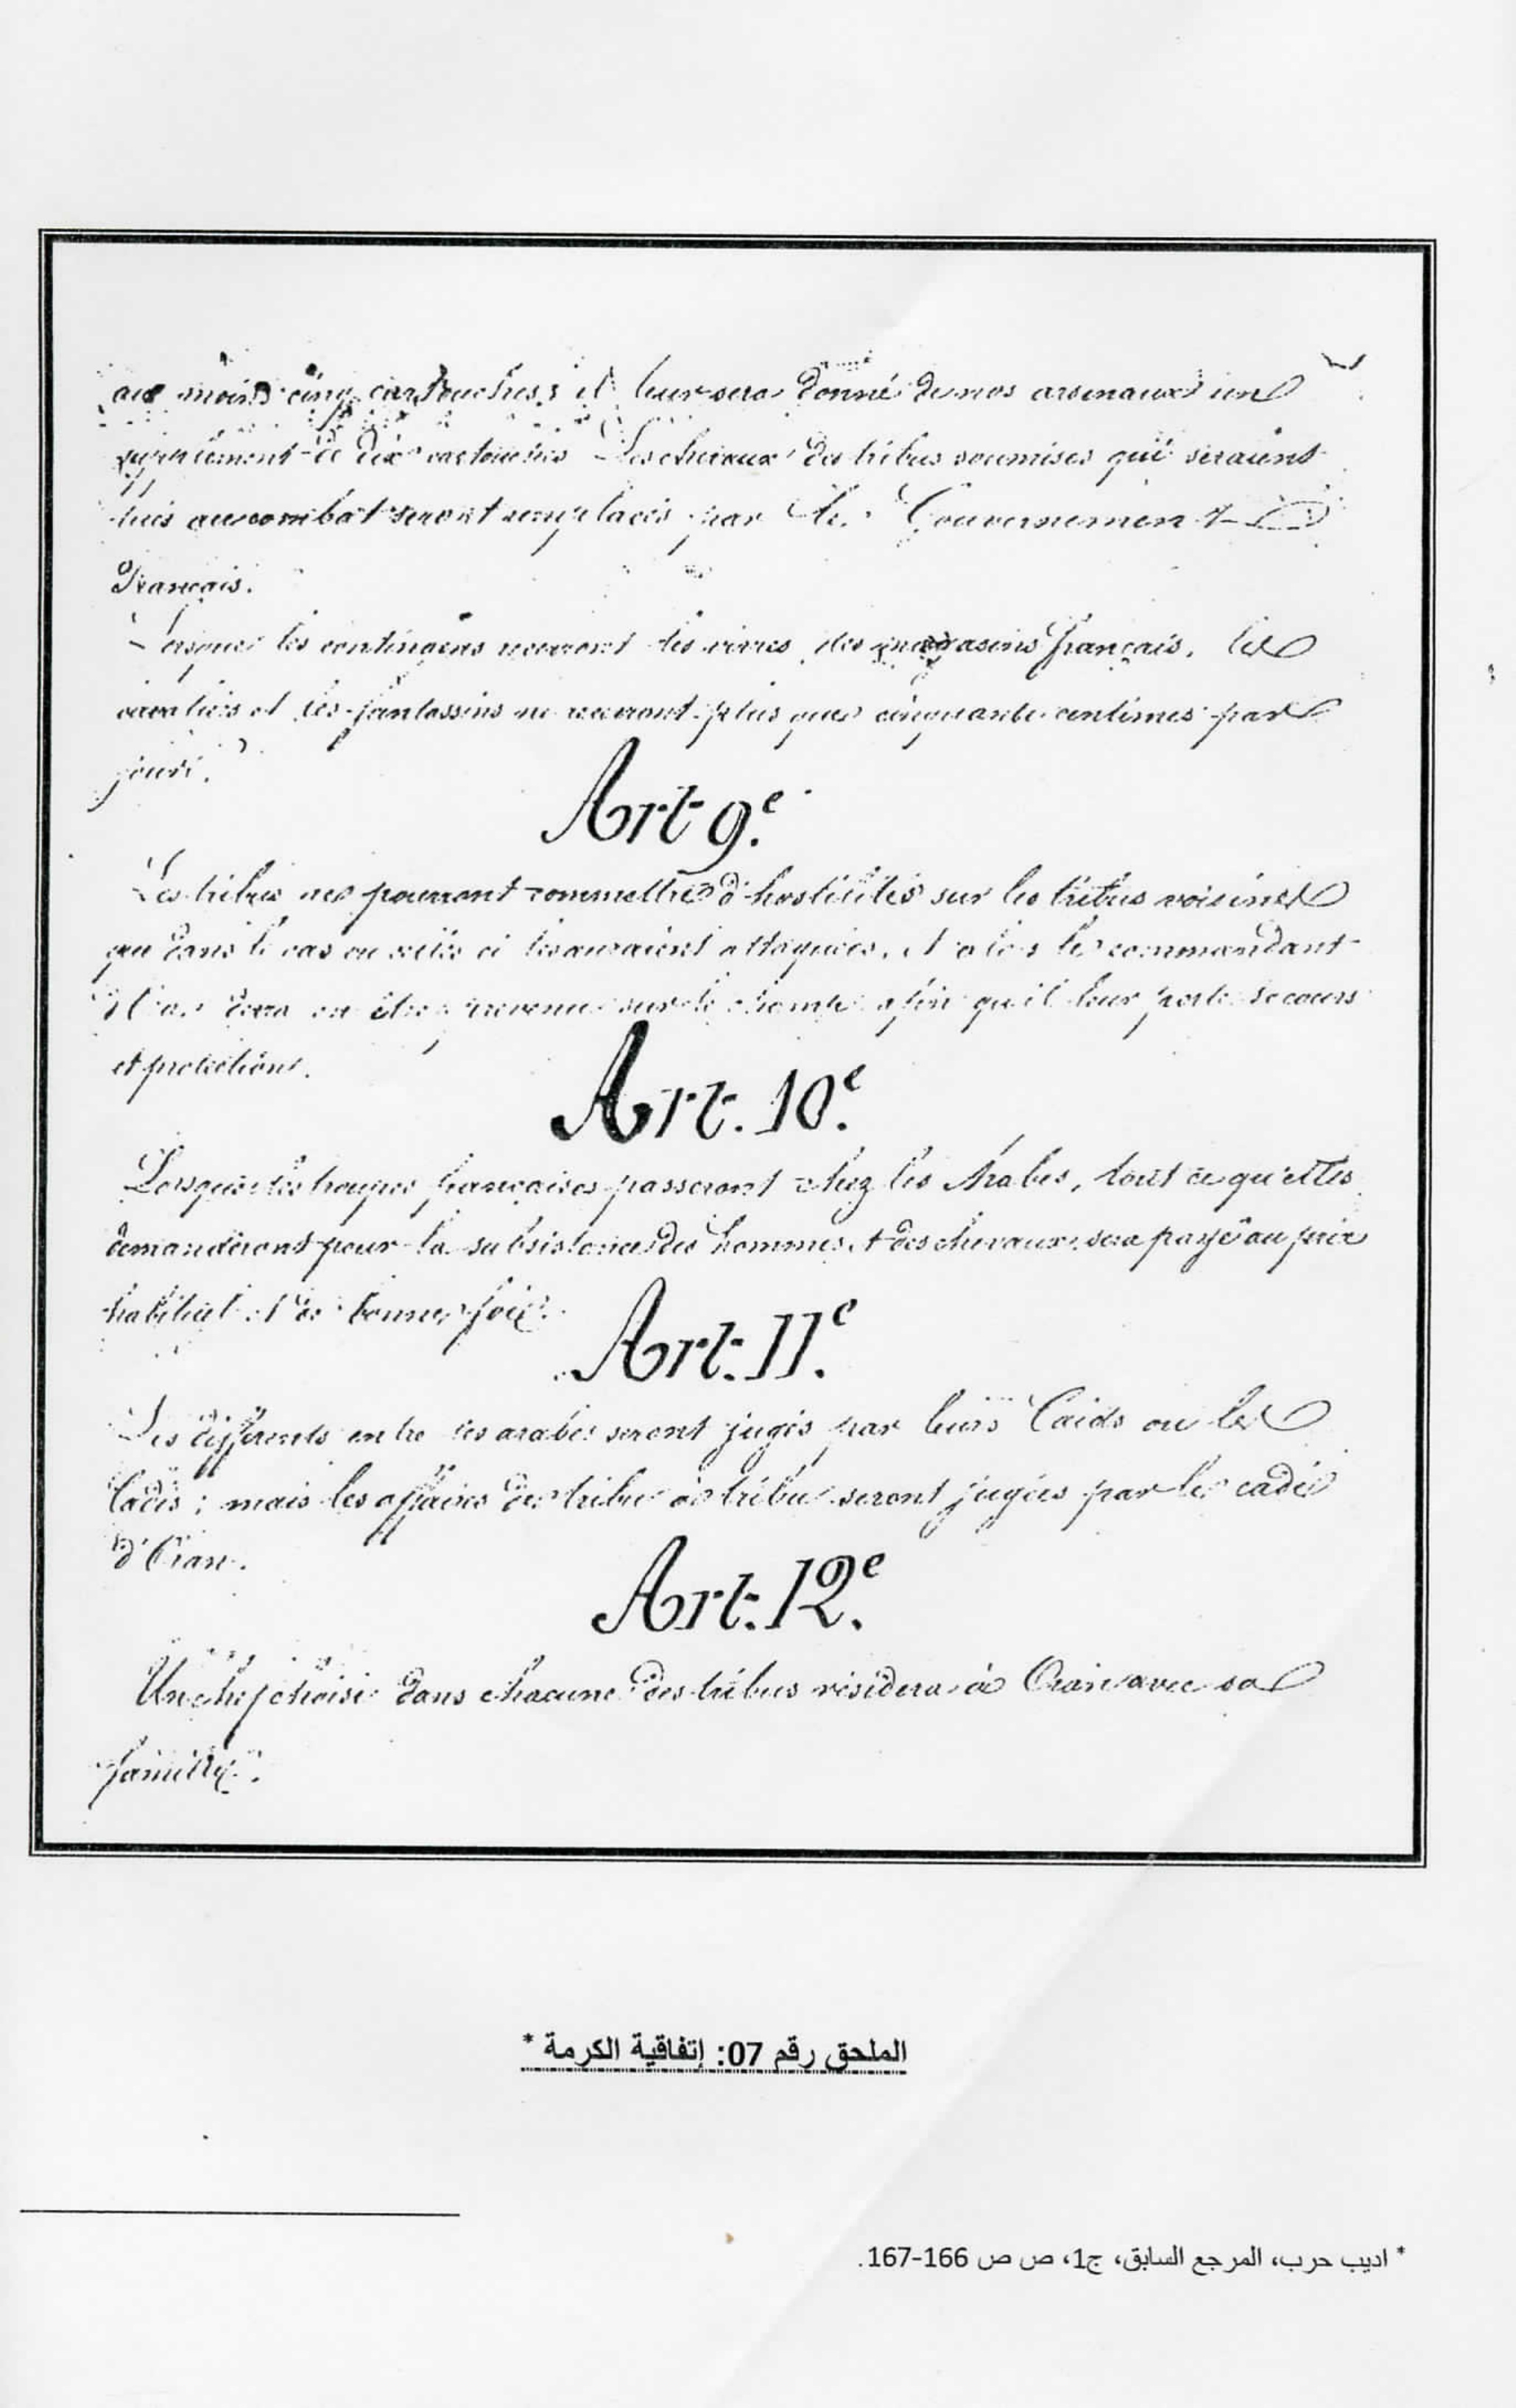 au moins cinq cartouches; il leur sera donné de nos arsenaux un
supplément de dix cartouches. Les chevaux des tribus soumises qui seraient
tués au combat seront remplacés par le Gouvernement
Français.
Lorsque les contingens recevront des vivres des magasins français, les
cavaliers et les fantassins ne recevront plus que cinquante centimes par
jour.
Art 9e.
Les tribus ne pourront commettre d'hostilités sur les tribus voisines
que dans le cas ou celles ci les auraient attaquées, et alors le commandant
d'Oran devra en être prevenu sur le champ afin qu'il leur porte secours
et protection.
Art. 10e.
Lorsque les troupes françaises passeront chez les Arabes, tout ce qu'elles
demanderont pour la subsistance des hommes et des chevaux sera payé au prix
habituel et de bonne foi.
Art. 11e.
Les différents entre les arabes seront jugés par leurs Caids ou les
Cadis; mais les affaires de tribu à tribu seront jugées par le cadi
d'Oran.
Art. 12e.
Un chef choisi dans chacune des tribus résidera à Oran avec sa
famille.
الملحق رقم 07: إتفاقية الكرمة *
* اديب حرب، المرجع السابق، ج1، ص ص 166-167.